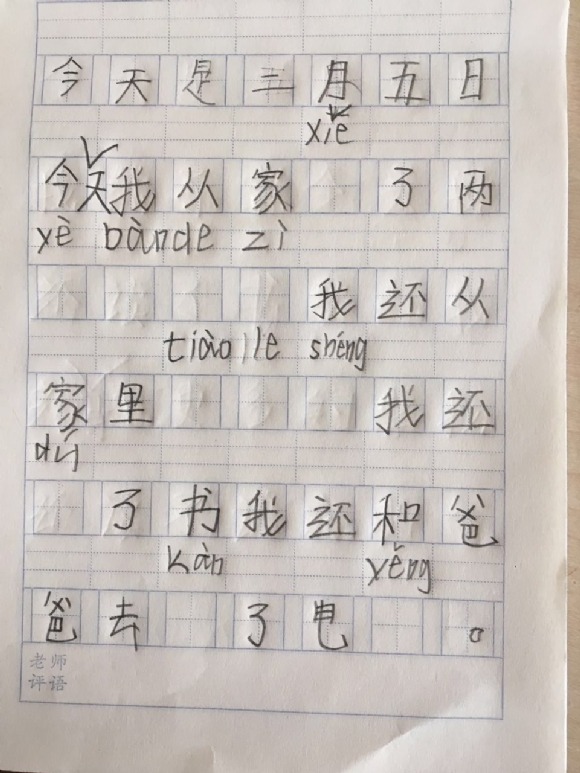 今天是三月五日
xiě
今天我从家了两
yè bànde zì
我还从
tiào le shéng
家里我还
dú
了书我还和爸
kàn yěng
爸去了电。
老师
评语